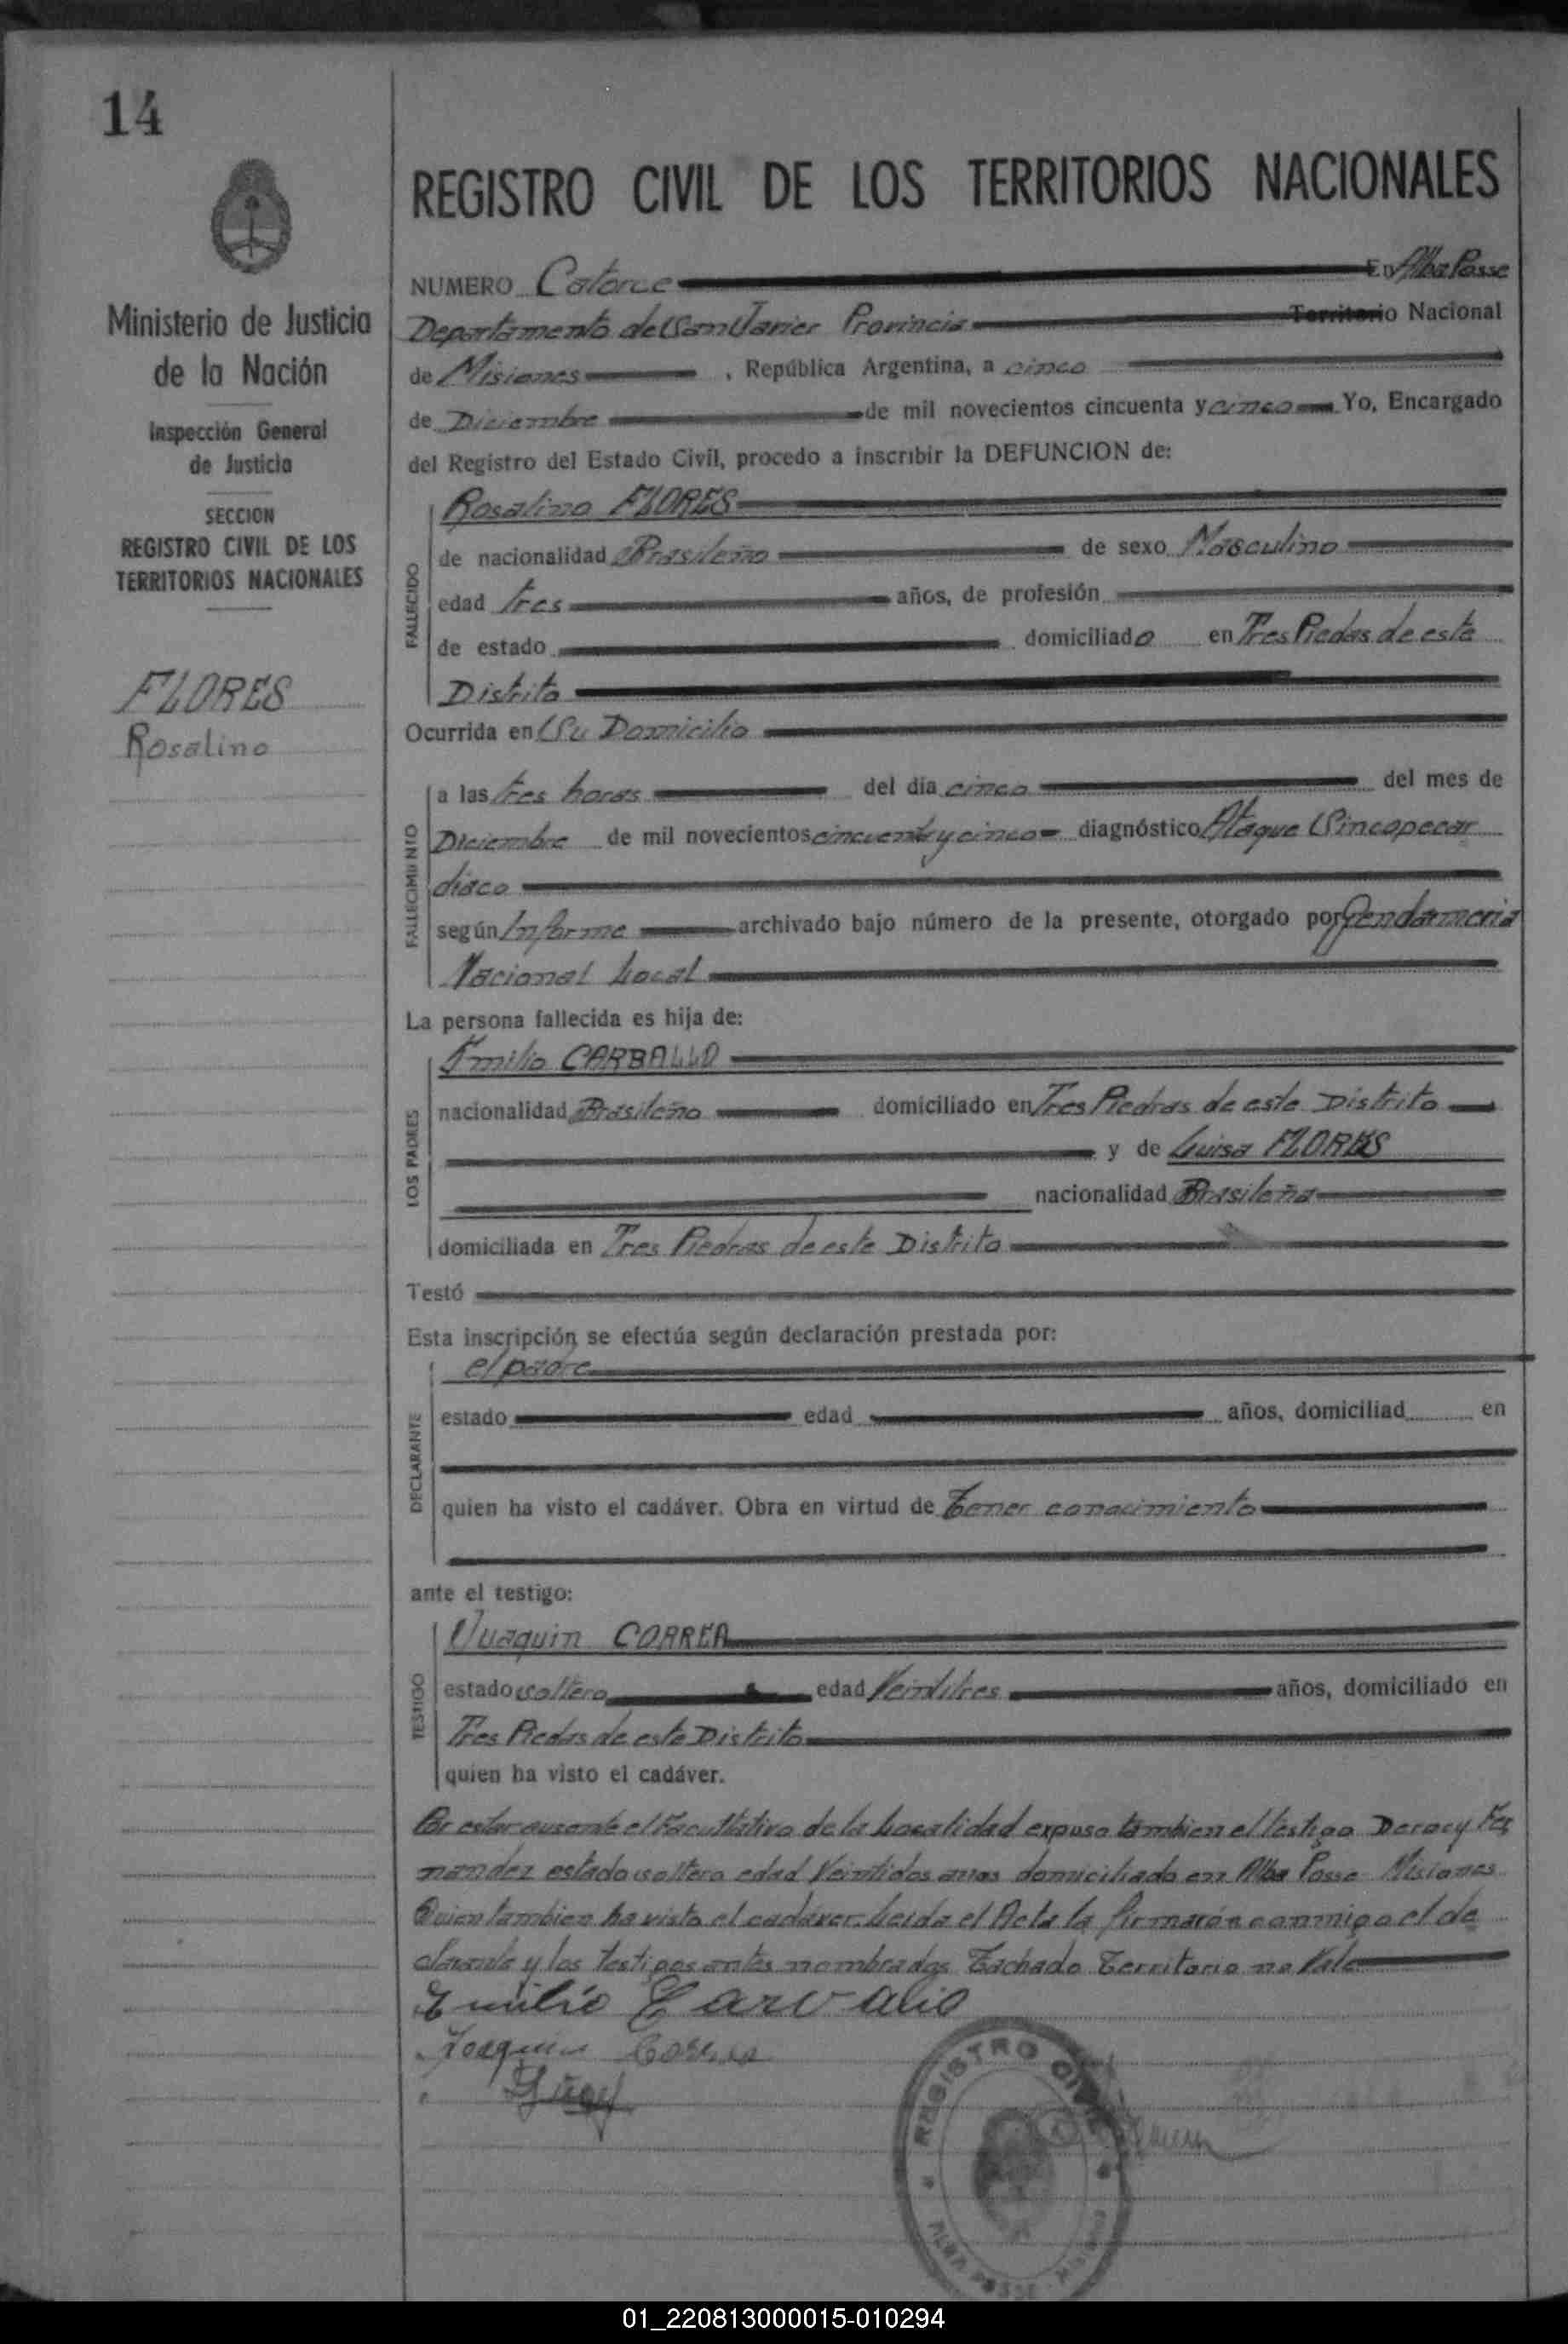 14
REGISTRO CIVIL DE LOS TERRITORIOS NACIONALES
Ministerio de Justicia
de la Nación
Inspección General
de Justicia
SECCION
REGISTRO CIVIL DE LOS
TERRITORIOS NACIONALES
FLORES
Rosalino
NUMERO Catorce En Alba Posse
Departamento de San Javier Provincia Territorio Nacional
de Misiones, República Argentina, a cinco
de Diciembre de mil novecientos cincuenta y cinco Yo, Encargado
del Registro del Estado Civil, procedo a inscribir la DEFUNCION de:
FALLECIDO
Rosalino FLORES
de nacionalidad Brasileño de sexo Masculino
edad tres años, de profesión
de estado domiciliado en Tres Piedas de este
Distrito
Ocurrida en Su Domicilio
FALLECIMIENTO
a las tres horas del día cinco del mes de
Diciembre de mil novecientos cincuenta y cinco diagnóstico Ataque Sincopecar
diaco
según Informe archivado bajo número de la presente, otorgado por Gendarmeria
Nacional Local
La persona fallecida es hija de:
LOS PADRES
Emilio CARBALLO
nacionalidad Brasileño domiciliado en Tres Piedras de este Distrito
y de Luisa FLORES
nacionalidad Brasileña
domiciliada en Tres Piedras de este Distrito
Testó
Esta inscripción se efectúa según declaración prestada por:
DECLARANTE
el padre
estado edad años, domiciliad en
quien ha visto el cadáver. Obra en virtud de Tener conocimiento
ante el testigo:
TESTIGO
Juaquin CORREA
estado soltero edad Veintitres años, domiciliado en
Tres Piedas de este Distrito
quien ha visto el cadáver.
Por estar ausente el Facultativo de la Localidad expuso tambien el testigo Deracy Fer
nandez estado soltero edad Veintidos años domiciliado en Alba Posse Misiones
Quien tambien ha visto el cadaver. Leida el Acta la firmarón conmigo el de
clarante y los testigos antes nombrados Tachado Territorio no Vale
Emilio Carvalio
Joaquin Correa
REGISTRO CIVIL
ALBA POSSE - MISIONES
01_220813000015-010294